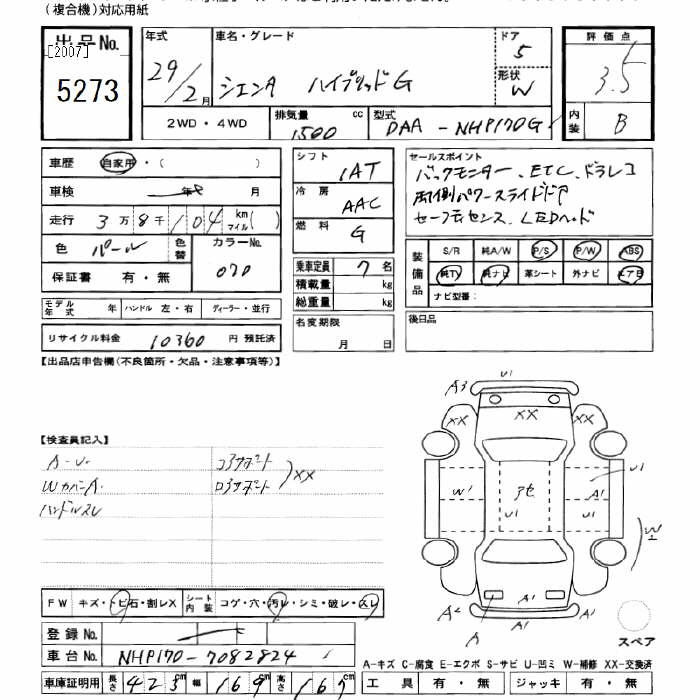 (複合機)対応用紙
出品No.
[2007]
5273
年式 車名・グレード ドア 評価点
29/2月 シエンタ ハイブリッドG 5 3.5
形状 W
2WD・4WD 排気量 1500 cc 型式 DAA-NHP170G 内装 B
車歴 自家用・( )
車検 年 月
走行 3万8千104 km マイル( )
色 パール 色替 カラーNo. 070
保証書 有・無
モデル年式 年 ハンドル 左・右 ディーラー・並行
リサイクル料金 10360 円 預託済
シフト IAT
冷房 AAC
燃料 G
乗車定員 7名
積載量 kg
総重量 kg
名変期限 月 日
セールスポイント
バックモニター、ETC、ドラレコ
両側パワースライドドア
セーフティセンス、LEDヘッド
装備品 S/R 純A/W P/S P/W ABS
純TV 純ナビ 革シート 外ナビ エアB
ナビ型番:
後日品
【出品店申告欄(不良箇所・欠品・注意事項等)】
【検査員記入】
A-U. コアサポート
Wカバー-A. ロアサポート XX
ハンドルスレ
A3 U1
XX XX XX
U1
W1 3セ A1
U1 U1
W1
A2 A1 A1
A
スペア
FW キズ・トビ石・割レX シート内装 コゲ・穴・汚レ・シミ・破レ・スレ
登録No.
車台No. NHP170-7082824
車庫証明用 長さ 423 幅 169 高さ 167
A-キズ C-腐食 E-エクボ S-サビ U-凹ミ W-補修 XX-交換済
工具 有・無 ジャッキ 有・無